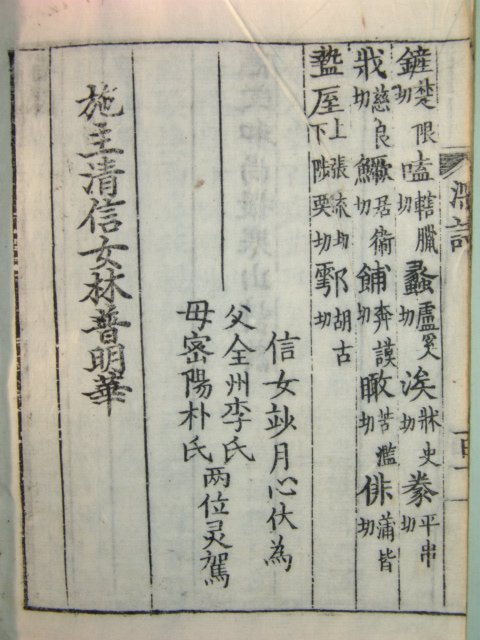 鏟楚限切嗑轄臘切蠡盧奚切涘牀史切豢平串切
戕慈良切鱖居衛切餔奔謨切瞰苦濫切俳蒲皆切
盩厔上張流切下陟栗切鄠胡古切
信女竗月心伏為
父全州李氏
母密陽朴氏
兩位灵駕
施主清信女林普明華